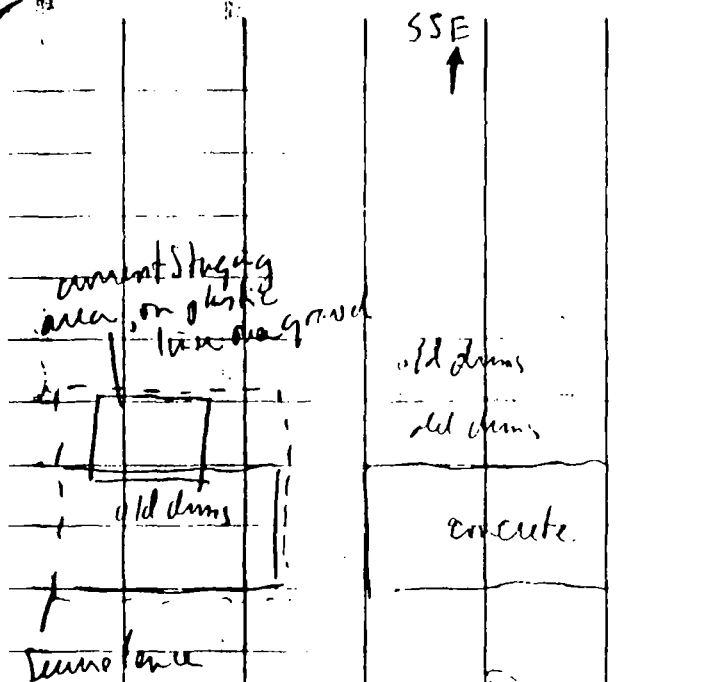 SSE
current Staging
area, on plastic
liner over gravel
old drums
old drums
old drums
concrete.
fence